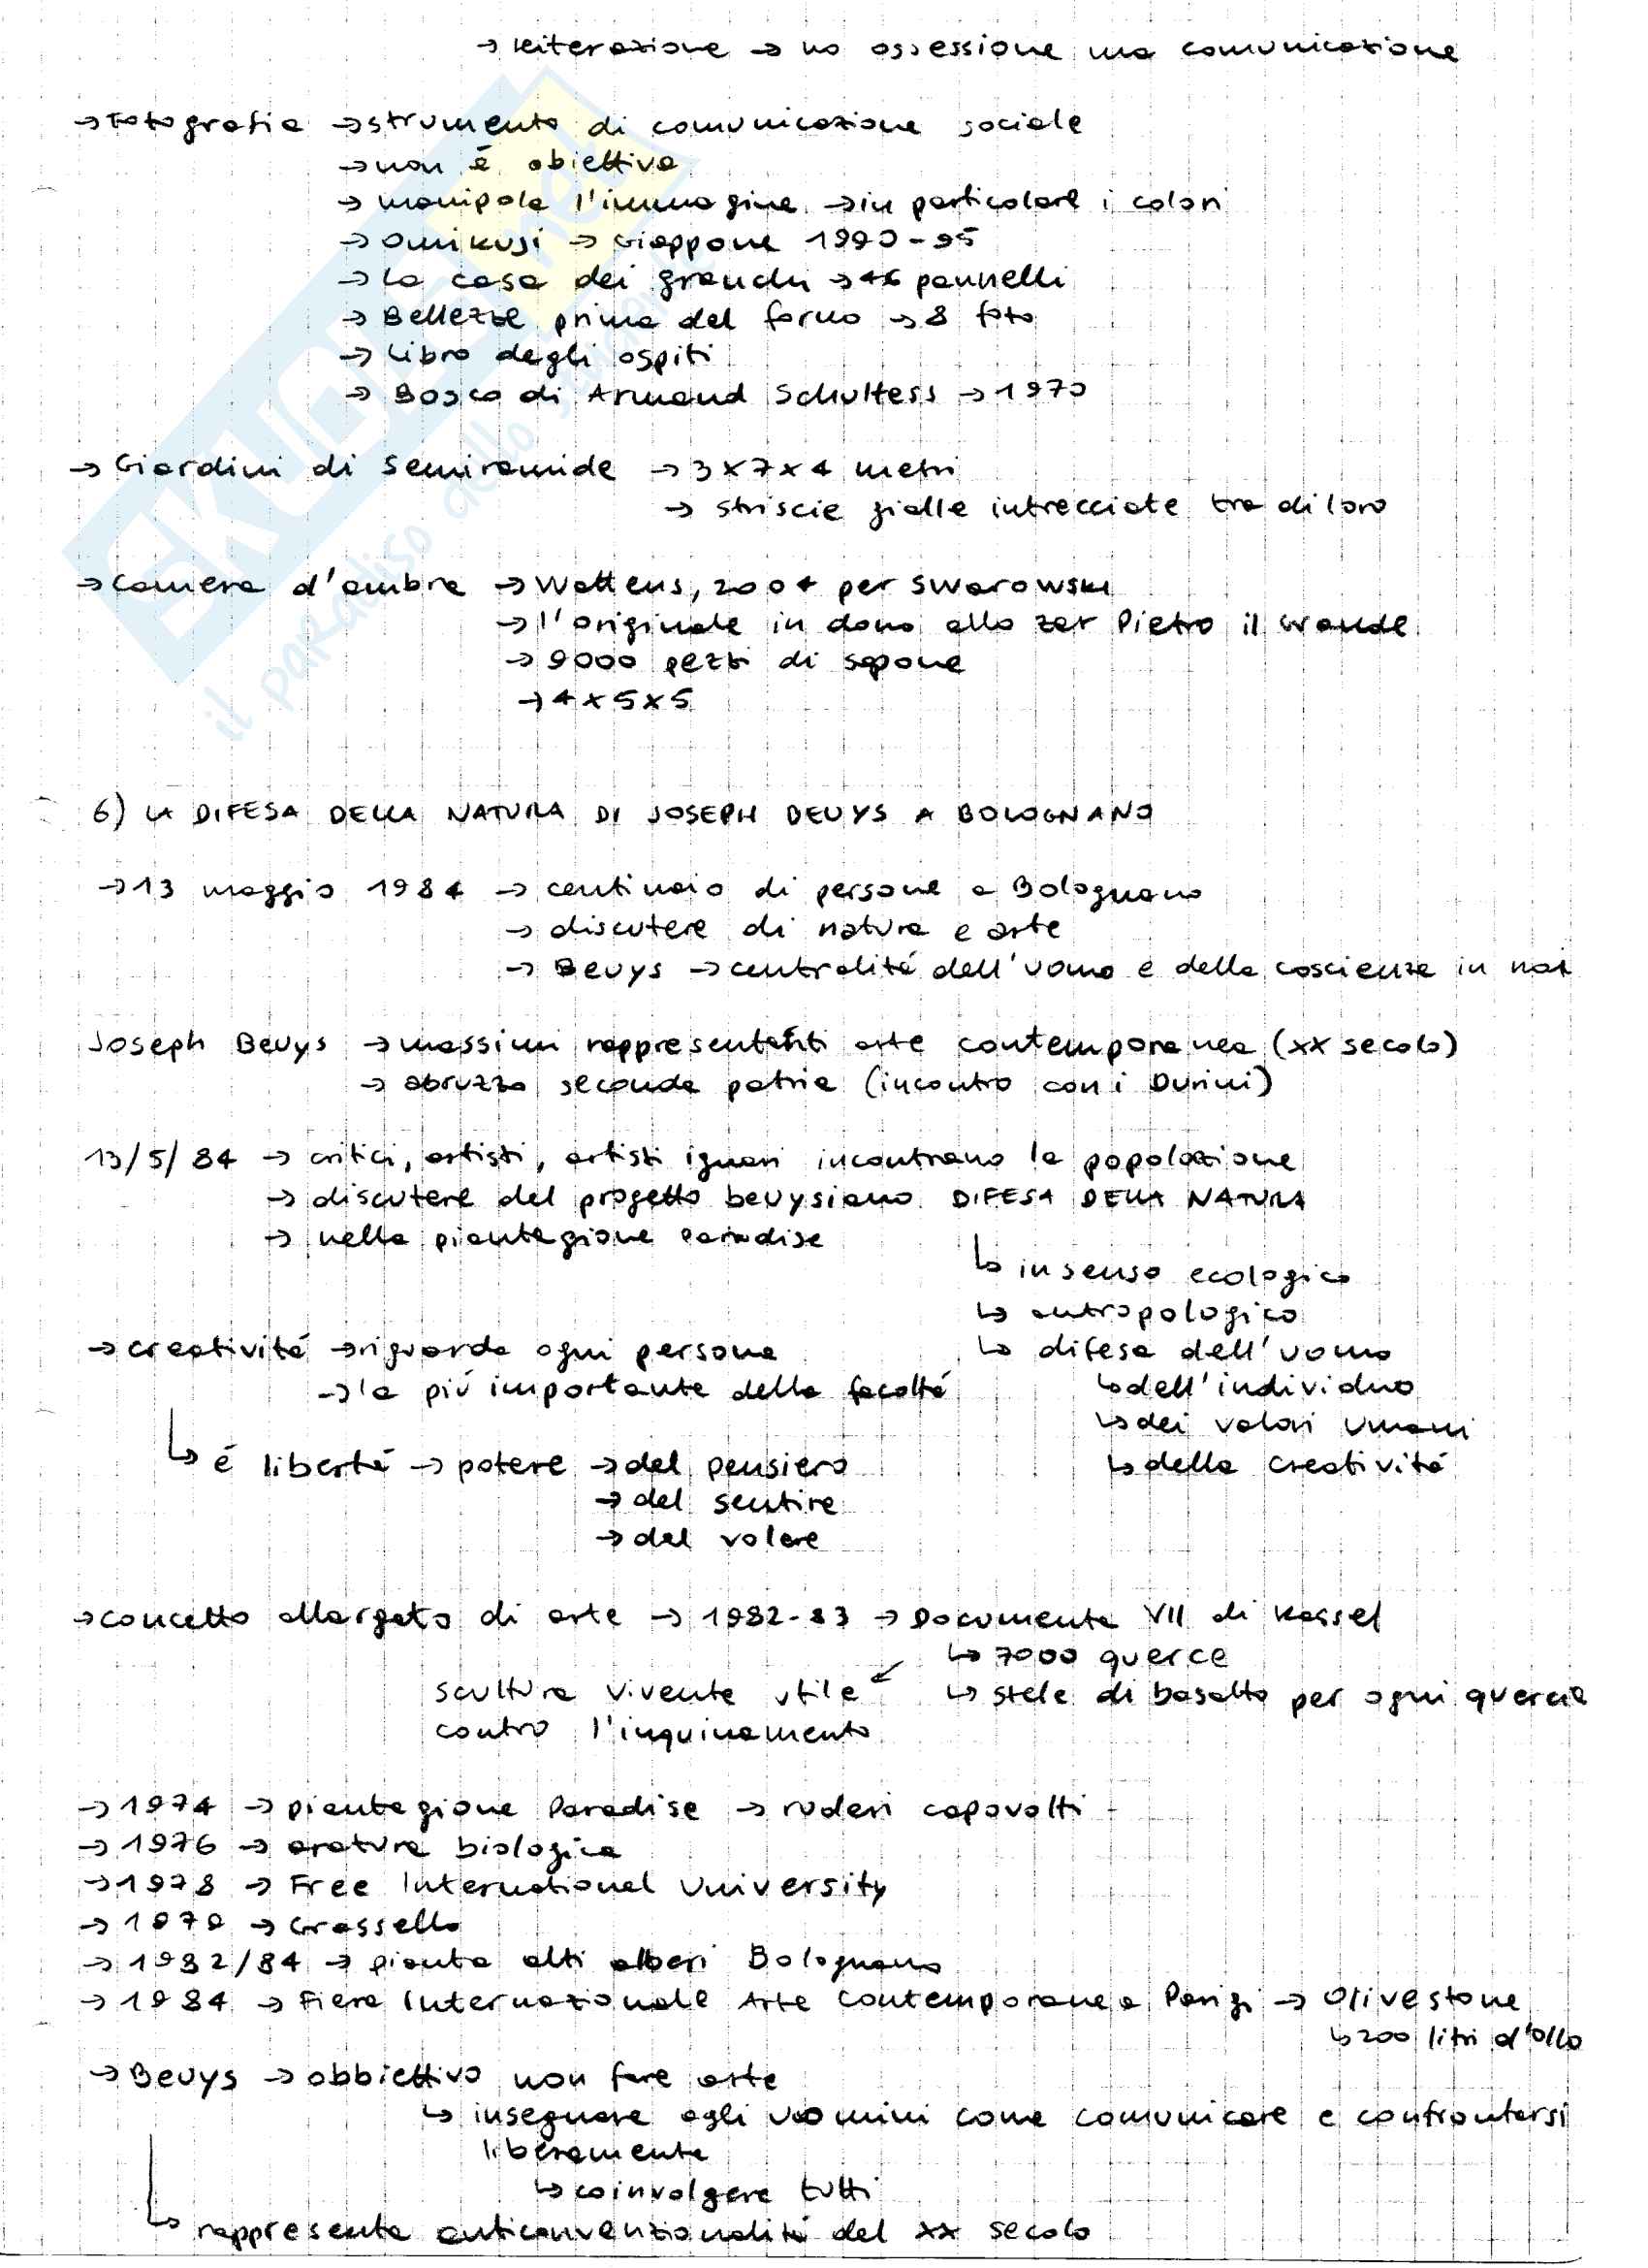 → reiterazione → no ossessione ma comunicazione
→ Fotografia → strumento di comunicazione sociale
→ non é obiettiva
→ manipola l'immagine → in particolare i colori
→ Omikuji → Giappone 1990-95
→ La casa dei granchi → 46 pannelli
→ Bellezze prima del forno → 8 foto
→ Libro degli ospiti
→ Bosco di Armand Schultess → 1970
→ Giardini di Semiramide → 3x7x4 metri
→ striscie gialle intrecciate tra di loro
→ Camera d'ambra → Wattens, 2004 per Swarowski
→ l'originale in dono allo zar Pietro il Grande
→ 9000 pezzi di sapone
→ 4x5x5
6) LA DIFESA DELLA NATURA DI JOSEPH BEUYS A BOLOGNANO
→ 13 maggio 1984 → centinaio di persone a Bolognano
→ discutere di natura e arte
→ Beuys → centralitá dell'uomo e della coscienza in nat
Joseph Beuys → massimi rappresentanti arte contemporanea (XX secolo)
→ abruzzo seconda patria (incontro con i Durini)
13/5/84 → critici, artisti, artisti ignari incontrano la popolazione
→ discutere del progetto beuysiano DIFESA DELLA NATURA
→ nella piantagione Paradise
↳ in senso ecologico
↳ antropologico
→ creativitá → riguarda ogni persona
↳ difesa dell'uomo
→ la piú importante della facoltá
↳ dell'individuo
↳ dei valori umani
↳ é libertá → potere → del pensiero
↳ della creativitá
→ del sentire
→ del volere
→ concetto allargato di arte → 1982-83 → Documenta VII di Kassel
↳ 7000 querce
scultura vivente utile ↙ ↳ stele di basalto per ogni quercia
contro l'inquinamento
→ 1974 → piantagione Paradise → ruderi capovolti
→ 1976 → aratura biologica
→ 1978 → Free International University
→ 1979 → Grassello
→ 1982/84 → pianta alti alberi Bolognano
→ 1984 → Fiera Internazionale Arte Contemporanea Parigi → Olivestone
↳ 200 litri d'olio
→ Beuys → obbiettivo non fare arte
↳ insegnare agli uomini come comunicare e confrontarsi
liberamente
↳ coinvolgere tutti
↳ rappresenta anticonvenzionalitá del XX secolo